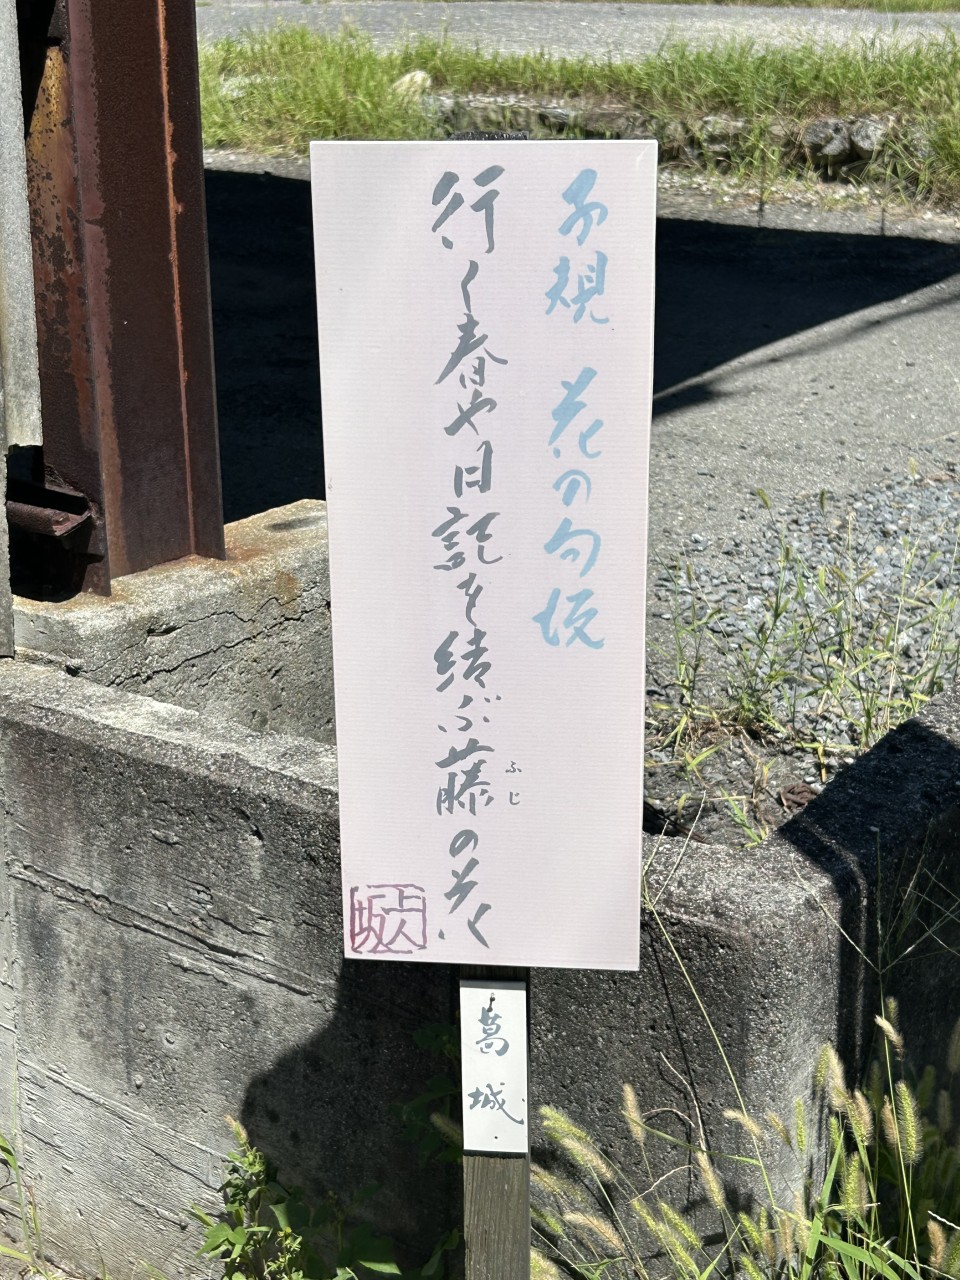 子規 花の句坂
行く春や日記を結ぶ藤の花
ふじ
上人坂
葛城